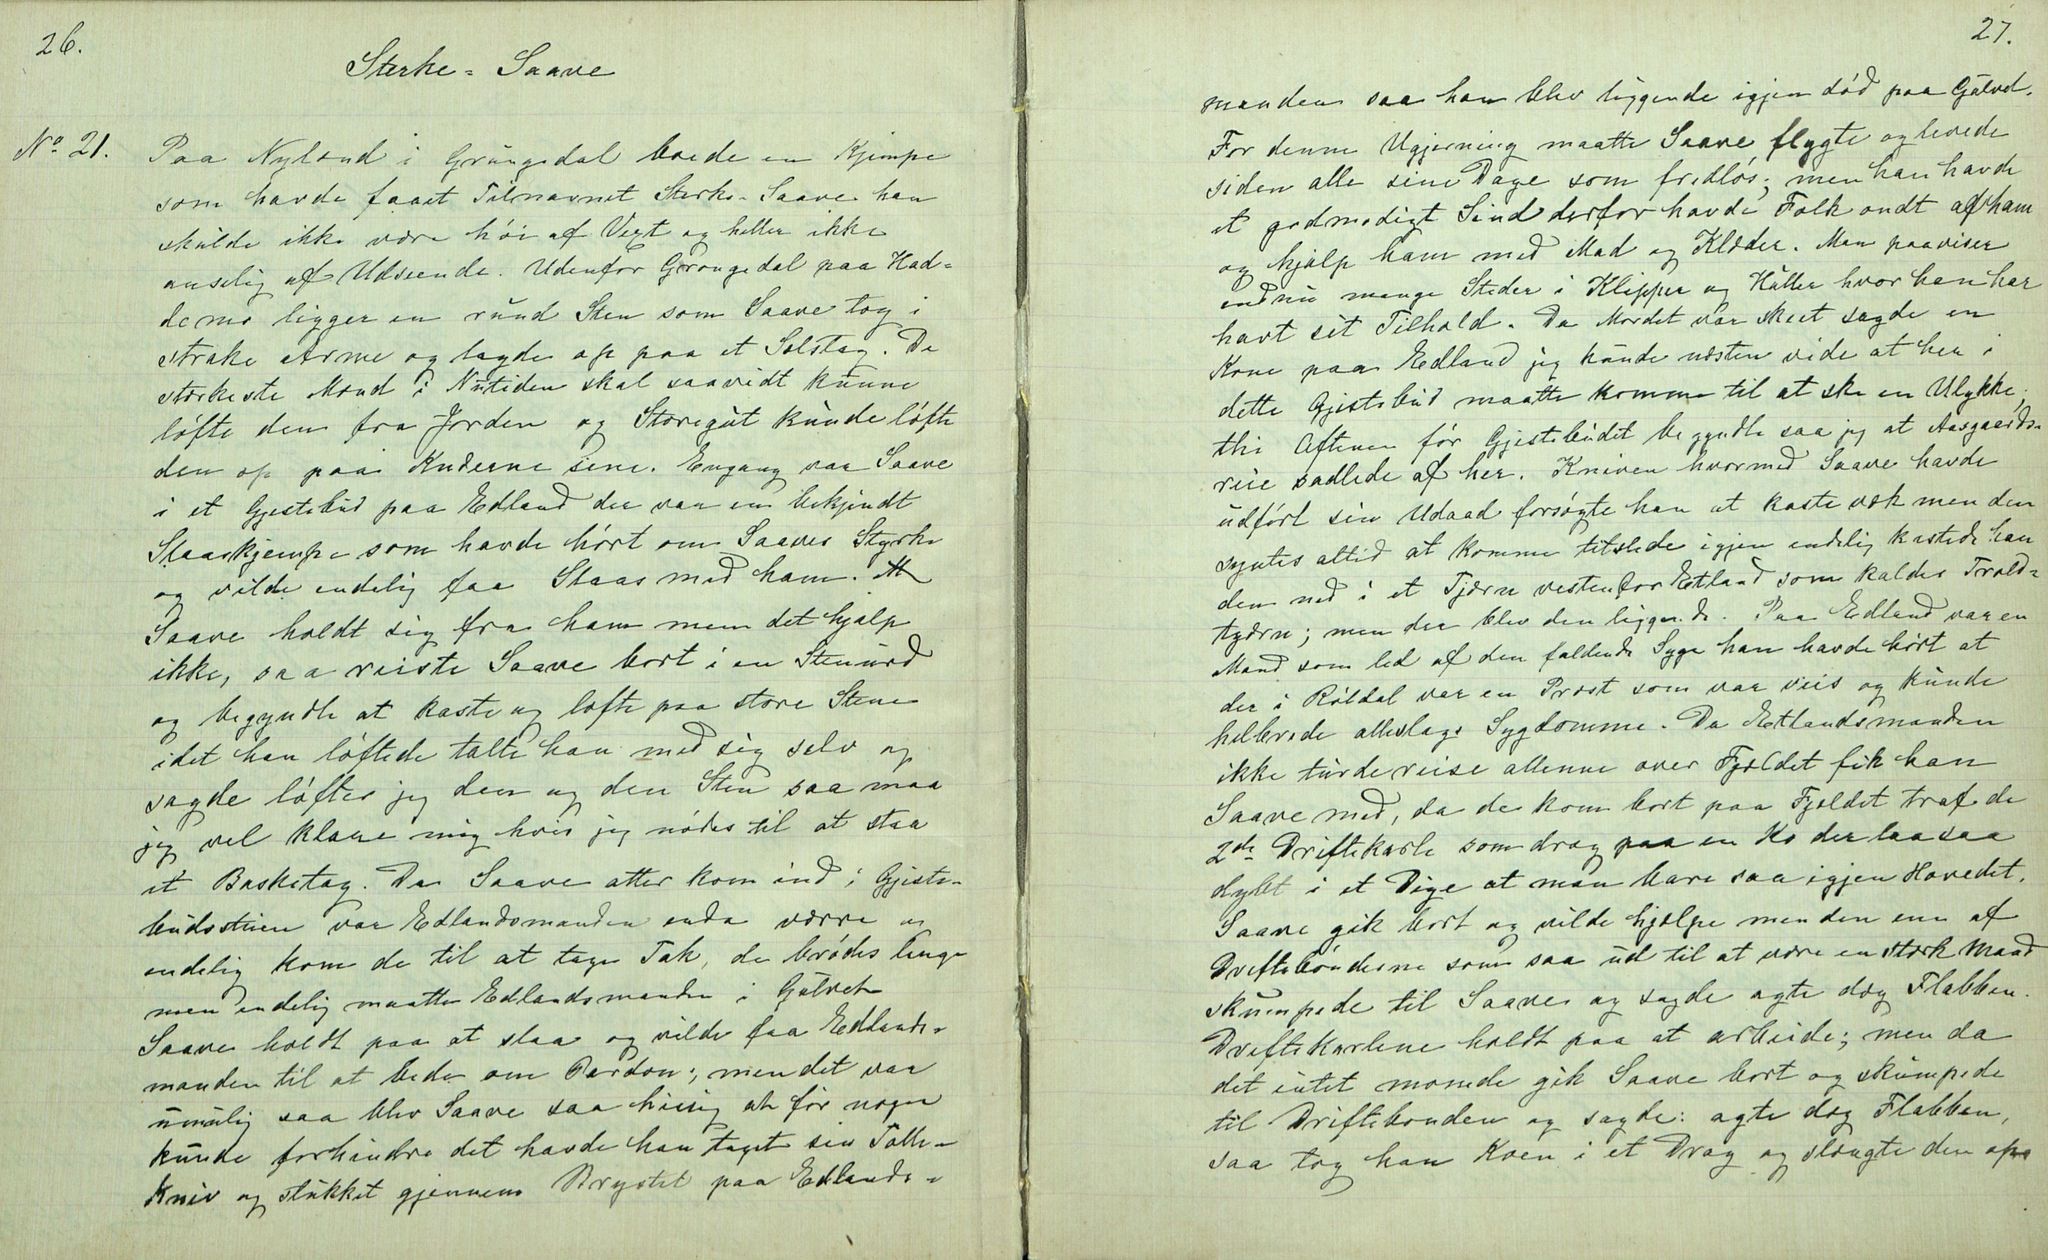 26.
Sterke-Saave
No 21. Paa Nyland i Grungedal boede en Kjempe
som havde faaet Tilnavnet Sterke-Saave han
skulde ikke være höi af Vext og heller ikke
anselig af Udseende. Udenfor Grongedal paa Had-
demo ligger en rund Sten som Saave tog i
strake Arme og lagde op paa et Solstag. De
stærkeste Mænd i Nutiden skal saavidt kunne
löfte den fra Jorden og Storegut kunde löfte
den op paa Knderne sine. Engang var Saave
i et Gjestebud paa Edland der var en bekjendt
Slaaskjempe som havde hört om Saaves Styrke
og vilde endelig faa Slaas med ham.
Saave holdt sig fra ham men det hjalp
ikke, saa reiste Saave bort i en Stenurd
og begyndte at kaste og löfte paa store Stene
idet han löftede talte han med sig selv og
sagde löfter jeg den og den Sten saa maa
jeg vel klare mig hvis jeg nödes til at staa
et Basketag. Da Saave atter kom ind i Gjeste-
budsstuen var Edlandsmanden enda værre og
endelig kom de til at tage Tak, de brödes lenge
men endelig maatte Edlandsmanden i Gulvet
Saave holdt paa at slaa og vilde faa Edlands-
manden til at bede om Pardon; men det var
umulig saa blev Saave saa hisig at för nogen
kunde forhindre det havde han taget sin Tolle-
Kniv og stukket gjennem Brystet paa Edlands-
27.
manden saa han blev liggende igjen död paa Gulvet.
For denne Ugjerning maatte Saave flygte og levede
siden alle sine Dage som fredlös; men han havde
et godmodigt Sind derfor havde Folk ondt af ham
og hjalp ham med Mad og Klæder. Man paaviser
endnu mange Steder i Klipper og Huller hvor han har
havt sit Tilhold. Da Mordet var skeet sagde en
Kone paa Edland jeg kunde næsten vide at her i
dette Gjestebud maatte komme til at ske en Ulykke,
thi Aftenen för Gjestebudet begyndte saa jeg at Aasgaards-
reie sadlede af her. Kniven hvormed Saave havde
udfört sin Udaad forsögte han at kaste væk men den
syntes altid at komme tilstede igjen endelig kastede han
den ned i et Tjærn vestenfor Edland som kaldes Trold-
tgærn; men der blev den liggende. Paa Edland var en
Mand som led af den faldende Syge han havde hört at
der i Röldal var en Prest som var viis og kunde
helbrede alleslags Sygdomme. Da Edlandsmanden
ikke turde reise allenne over Fjeldet fik han
Saave med, da de kom bort paa Fjeldet traf de
2de Driftekarle som drog paa en Ko der laa saa
dybt i et Dige at man bare saa igjen Hovedet.
Saave gik bort og vilde hjælpe men den ene af
Driftebönderne som saa ud til at være en stærk Mand
skumpede til Saave og sagde agte dog Flabben.
Driftekarlene holdt paa at arbeide; men da
det intet monede gik Saave bort og skumpede
til Driftebonden og sagde: agte dog Flabben,
saa tog han Koen i et Drag og slængte den op